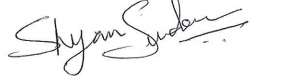 Shyam Sunder